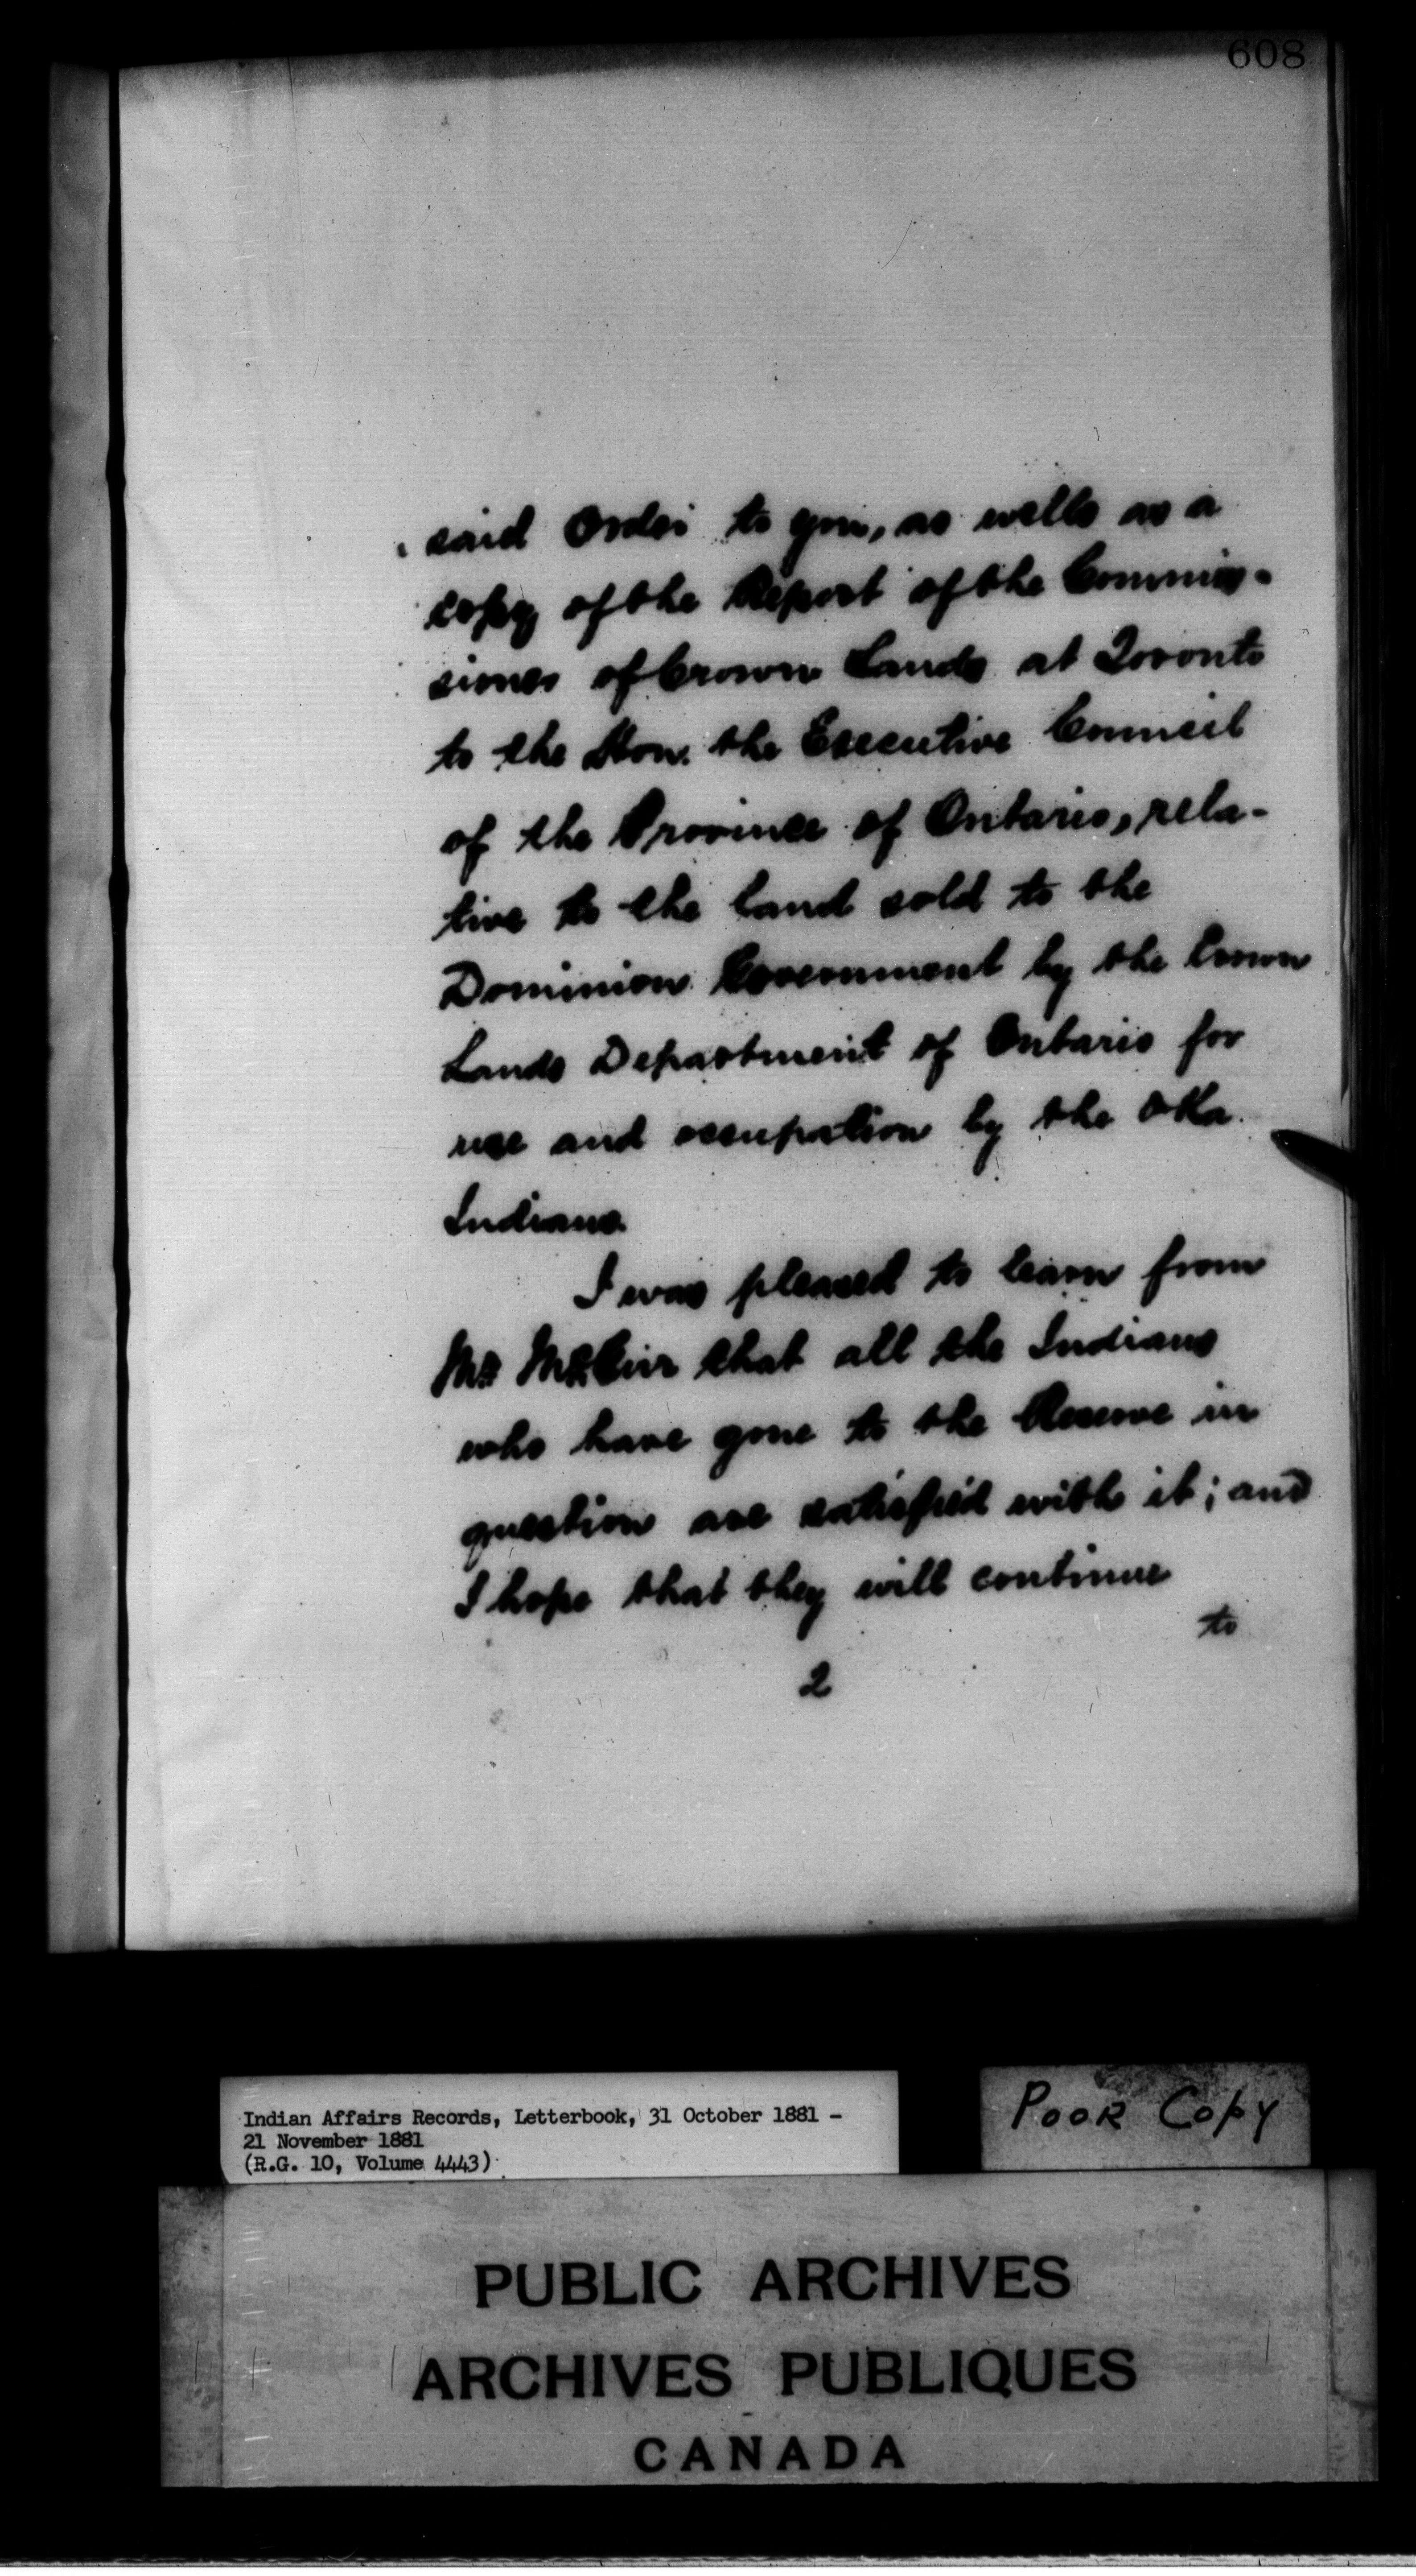 608
said Order to you, as well as a
copy of the Report of the Commis-
sioner of Crown Lands at Toronto
to the Hon. the Executive Council
of the Province of Ontario, rela-
tive to the land sold to the
Dominion Government by the Crown
Lands Department of Ontario for
use and occupation by the Oka
Indians.
I was pleased to learn from
Mr that all the Indians
who have gone to the Reserve in
question are satisfied with it; and
I hope that they will continue
to
2
Indian Affairs Records, Letterbook, 31 October 1881 -
21 November 1881
(R.G. 10, Volume 4443)
POOR COPY
PUBLIC ARCHIVES
ARCHIVES PUBLIQUES
CANADA